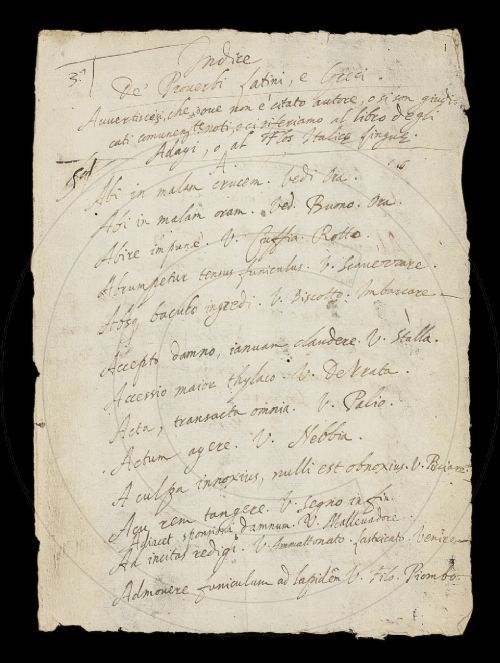 3.°
Indice
De' Proverbi Latini, e Greci.
Avvertiscasi, che dove non è citato autore, o si son giudi-
cati comunem.te noti, o ci riferiamo al libro degli
Adagi, o al Flos Italicę Linguę.
A.
Abi in malam crucem. Vedi Ora.
Abi in malam oram. Ved. Buono. Ora.
Abire impunè. V. Cuffia. Rotto.
Abrumpetur tensus funiculus. V. Scavezzare.
Absq baculo ingredi. V. Biscotto. Imbarcare
Accepto damno, ianuam claudere. V. Stalla.
Accessio maior thylaco. V. Derrata.
Acta, transacta omnia. V. Palio.
Actum agere. V. Nebbia.
A culpa innoxius, nulli est obnoxius. V.
Acu rem tangere. V. Segno in fin.
Adiacet sponsibus damnum. V. Mallevadore.
Ad incitas redigi. V. Ammattonato. Lastricato. Venire
Admovere funiculum ad lapidem V. Filo. Piombo.